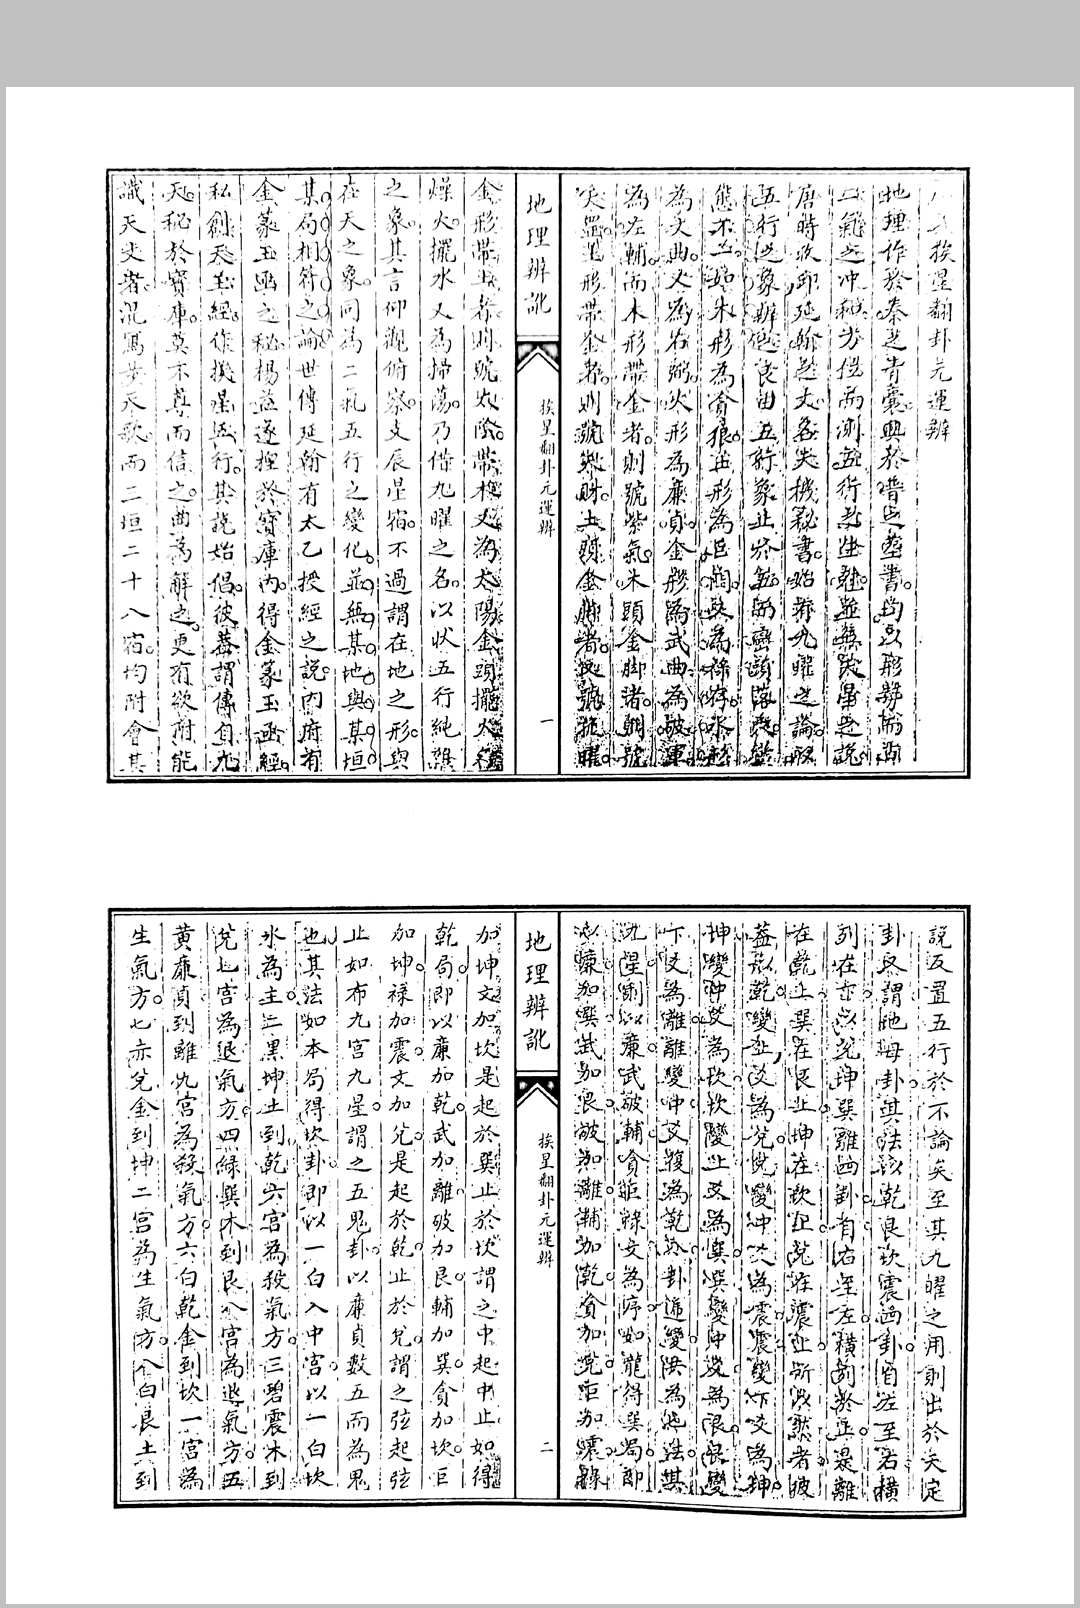 挨星翻卦元運辨
地理作於秦之青囊興於晋之葬書均以形勢而言
二氣之冲和
唐時收邱延翰之論
五行之象辨
態不一如木形為貪狼土形為巨門又為祿存水形
為文曲又為右弼火形為廉貞金形為武曲為破軍
為左輔而木形帶金者則號紫氣木頭金脚者則號
土形帶金者則號土頭金脚者
金形帶土者則號太陰帶木又為太陽金頭擺火
燥火擺水又為掃蕩乃借九曜之名以狀五行純雜
之象其言仰觀俯察支辰星宿不過謂在地之形與
在天之象同為二氣五行之變化並無某地與某垣
某局相符之論世傳延翰有太乙授經之說内府有
金篆玉函之秘楊益遂捏於寶庫内得金篆玉函經
私創天玉經作挨星五行其說始倡彼蓋謂傳自九
天秘於寶庫莫不尊而信之曲為解之更有欲附能
識天文者混寫步天歌而三垣二十八宿均附會其
地理辨訛
挨星翻卦元運辨
一
說反置五行於不論矣至其九曜之用則出於天定
卦名謂地母卦其法以乾艮坎震四卦自左至右橫
列在上以兌坤巽離四卦自右至左橫列於下是離
在乾上巽在艮上坤在坎上兌在震上所以然者彼
蓋以乾變上爻為兌兌變中爻為震震變下爻為坤
坤變中爻為坎坎變上爻為巽巽變中爻為艮艮變
下爻為離離變中爻復為乾八卦遞變洪為此法其
九星則以廉武破輔貪巨祿文為序如龍得巽局即
以廉加巽武加艮破加離輔加乾貪加兌巨加震祿
加坤文加坎是起於巽止於坎謂之中起中止如得
乾局即以廉加乾武加離破加艮輔加巽貪加坎巨
加坤祿加震文加兌是起於乾止於兌謂之弦起弦
止如布九宮九星謂之五鬼卦以廉貞數五而為鬼
也其法如本局得坎卦即以一白入中宮以一白坎
水為主二黑坤土到乾六宮為殺氣方三碧震木到
兌七宮為退氣方四綠巽木到艮八宮為退氣方五
黃廉貞到離九宮為殺氣方六白乾金到坎一宮為
生氣方七赤兌金到坤二宮為生氣方八白艮土到
地理辨訛
挨星翻卦元運辨
二